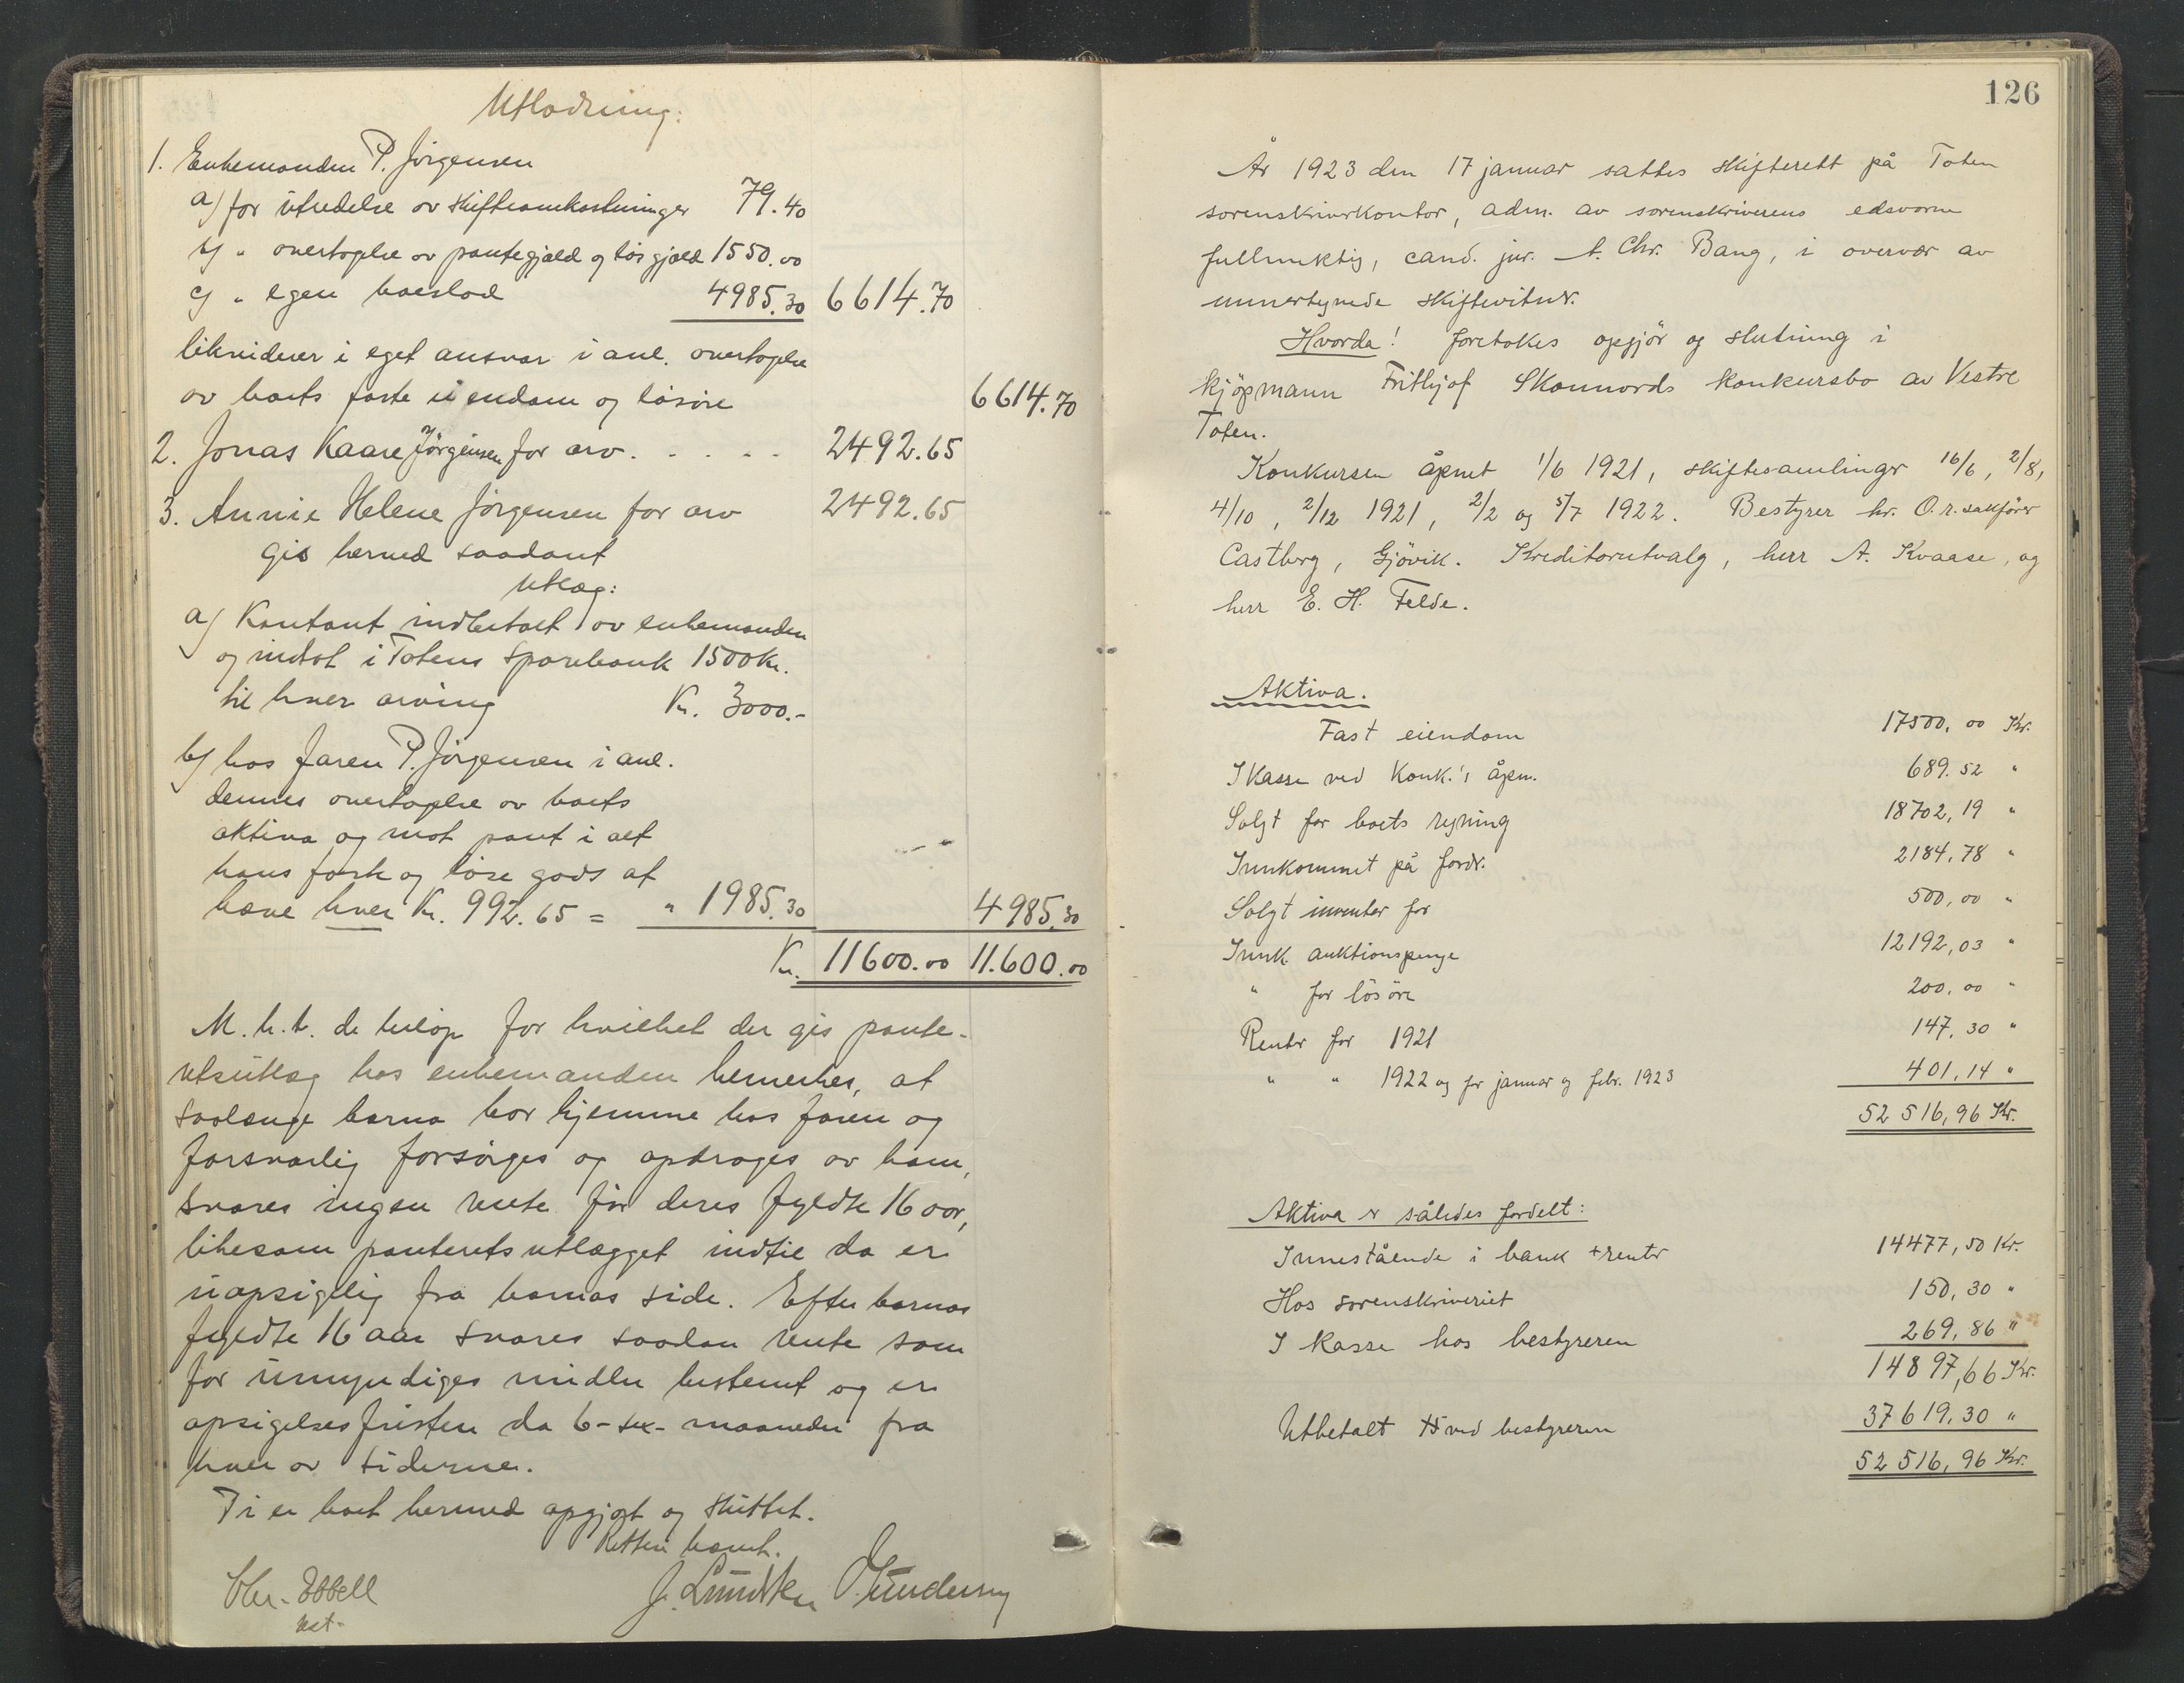 Utlodning:
1. Enkemanden P. Jörgensen
a) for utredelse av skifteomkostninger 79.40
b) " overtagelse av pantegjæld og løsgjæld 1550.00
c) " egen boeslod 4985.30 6614.70
likviderer i eget ansvar i anl. overtagelse
av boets faste eiendom og løsøre 6614.70
2. Jonas Kaare Jörgensen for arv . . . . . 2492.65
3. Annie Helene Jörgensen for arv 2492.65
gis herved saadant
Utlæg:
a) Kontant indbetalt av enkemanden
og indsat i Totens Sparebank 1500 kr.
til hver arving Kr. 3000.-
b) hos faren P. Jörgensen i anl.
dennes overtagelse av boets
aktiva og mot pant i alt
hans faste og løse gods at
hæve hver Kr. 992.65 = " 1985.30 4985.30
Kr. 11600.00 11.600.00
M.h.t. de beløp for hvilket der gis pante-
retsutlæg hos enkemanden bemerkes, at
saalænge barna bor hjemme hos faren og
forsvarlig forsörges og opdrages av ham,
svares ingen rente før deres fyldte 16 aar,
likesom panteretsutlægget indtil da er
uopsigelig fra barnas side. Efter barnas
fyldte 16 aar svares saadan rente som
for umyndiges midler bestemt og er
opsigelsesfristen da 6-sex- maaneder fra
hver av siderne.
Ti er boet hermed opgjort og sluttet.
Retten hævet.
Chr. Ebbell
kst.
J. Lundsten O. Gundersen
126
År 1923 den 17 januar sattes skifterett på Toten
sorenskriverkontor, adm. av sorenskriverens edsvorne
fullmektig, cand. jur. A. Chr. Bang, i overvær av
unnertegnede skiftevitner.
Hvorda! foretokes opgjör og slutning i
kjöpmann Frithjof Skonnords konkursbo av Vestre
Toten.
Konkursen åpnet 1/6 1921, skiftesamlinger 16/6, 2/8,
4/10, 2/12 1921, 2/2 og 5/7 1922. Bestyrer hr. O.r.sakförer
Castberg, Gjövik. Kreditorutvalg, herr A. Kvaase, og
herr E. H. Felde.
Aktiva.
Fast eiendom 17500,00 Kr.
I kasse ved Konk.'s åpn. 689.52 "
Solgt for boets regning 18702,19 "
Innkommet på fordr. 2184,78 "
Solgt inventar for 500,00 "
Innk. auktionspenge 12192,03 "
" for lösöre 200,00 "
Renter for 1921 147,30 "
" " 1922 og for januar og febr. 1923 401,14 "
52 516,96 Kr.
Aktiva er således fordelt:
Innestående i bank + renter 14477,50 Kr.
Hos sorenskriveriet 150,30 "
I kasse hos bestyreren 269,86 "
14897,66 Kr.
Utbetalt ved bestyreren 37619,30 "
52 516,96 Kr.